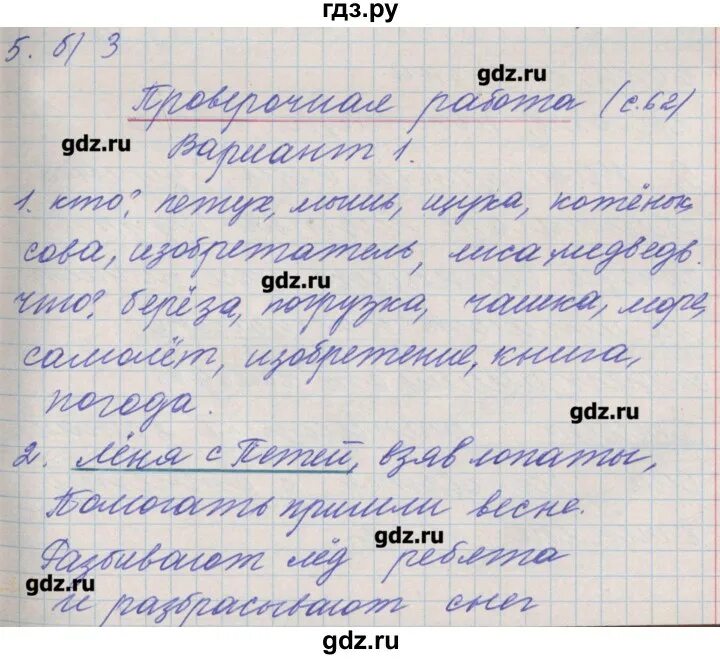 гдз.ру
5. б) 3
gdz.ru
Проверочная работа (с.62)
gdz.ru
Вариант 1.
1. кто? петух, мышь, щука, котёнок,
сова, изобретатель, лиса, медведь.
gdz.ru
что? берёза, погрузка, чашка, море,
самолёт, изобретение, книга,
погода.
gdz.ru
2. Лёня с Петей, взяв лопаты,
Помогать пришли весне.
gdz.ru
Разбивают лёд ребята
gdz.ru
И разбрасывают снег
gdz.ru